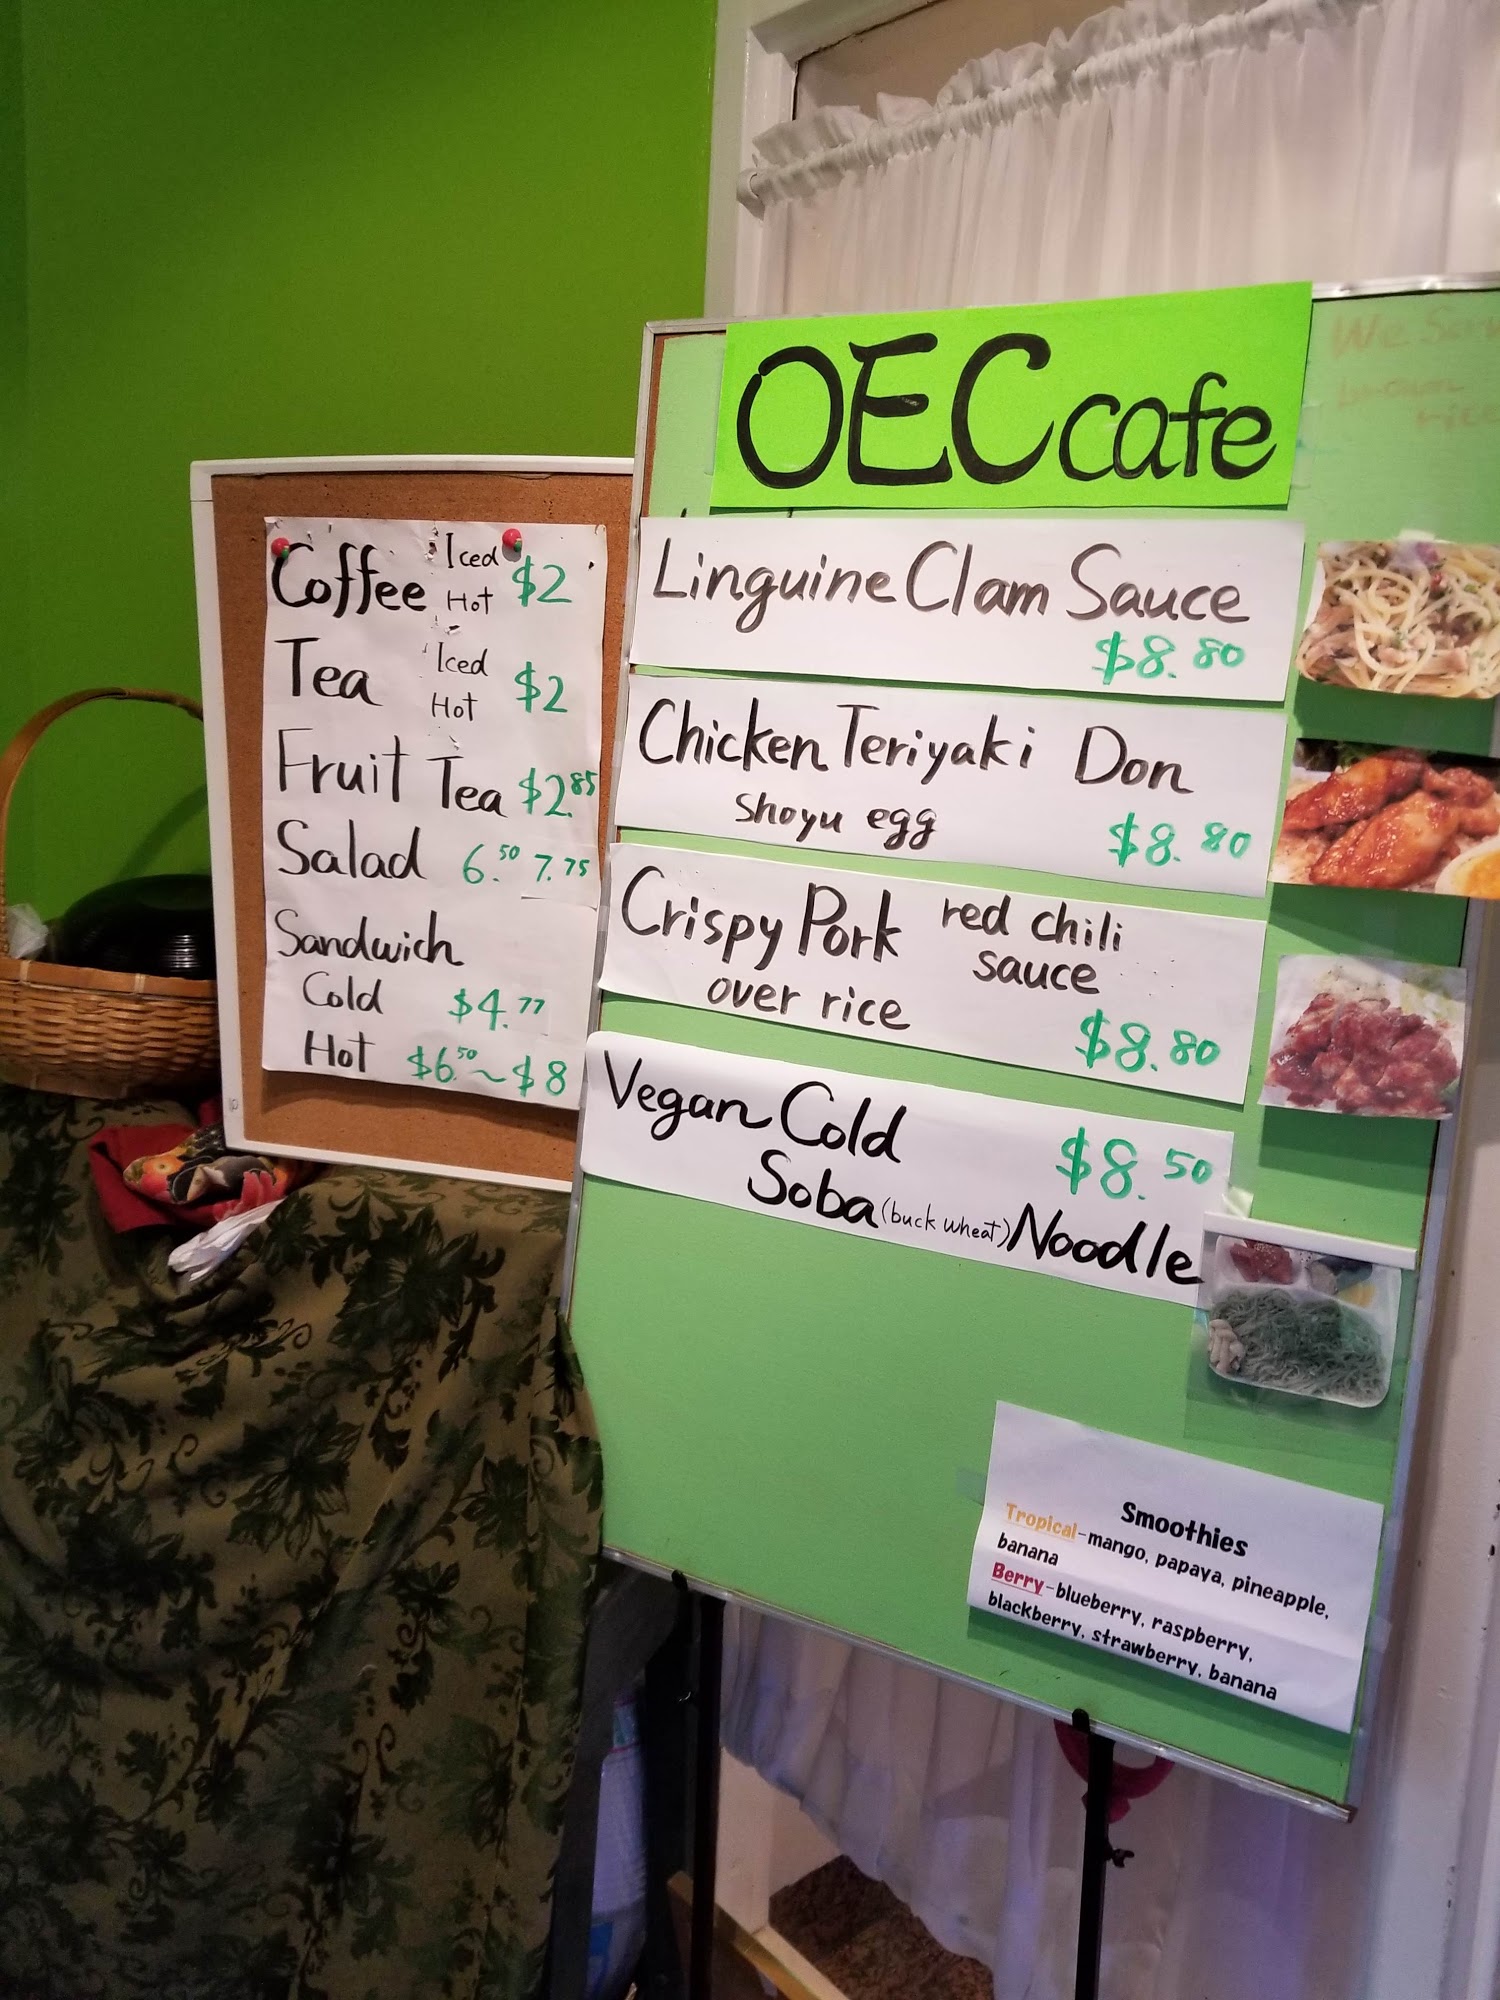 Coffee Iced Hot $2
Tea Iced Hot $2
Fruit Tea $2.85
Salad 6.50 7.75
Sandwich
Cold $4.77
Hot $6.50~$8
OEC cafe
We
brown
rice
Linguine Clam Sauce
$8.80
Chicken Teriyaki Don
shoyu egg $8.80
Crispy Pork red chili
sauce
over rice
$8.80
Vegan Cold $8.50
Soba (buck wheat) Noodle
Smoothies
Tropical-mango, papaya, pineapple,
banana
Berry-blueberry, raspberry,
blackberry, strawberry, banana